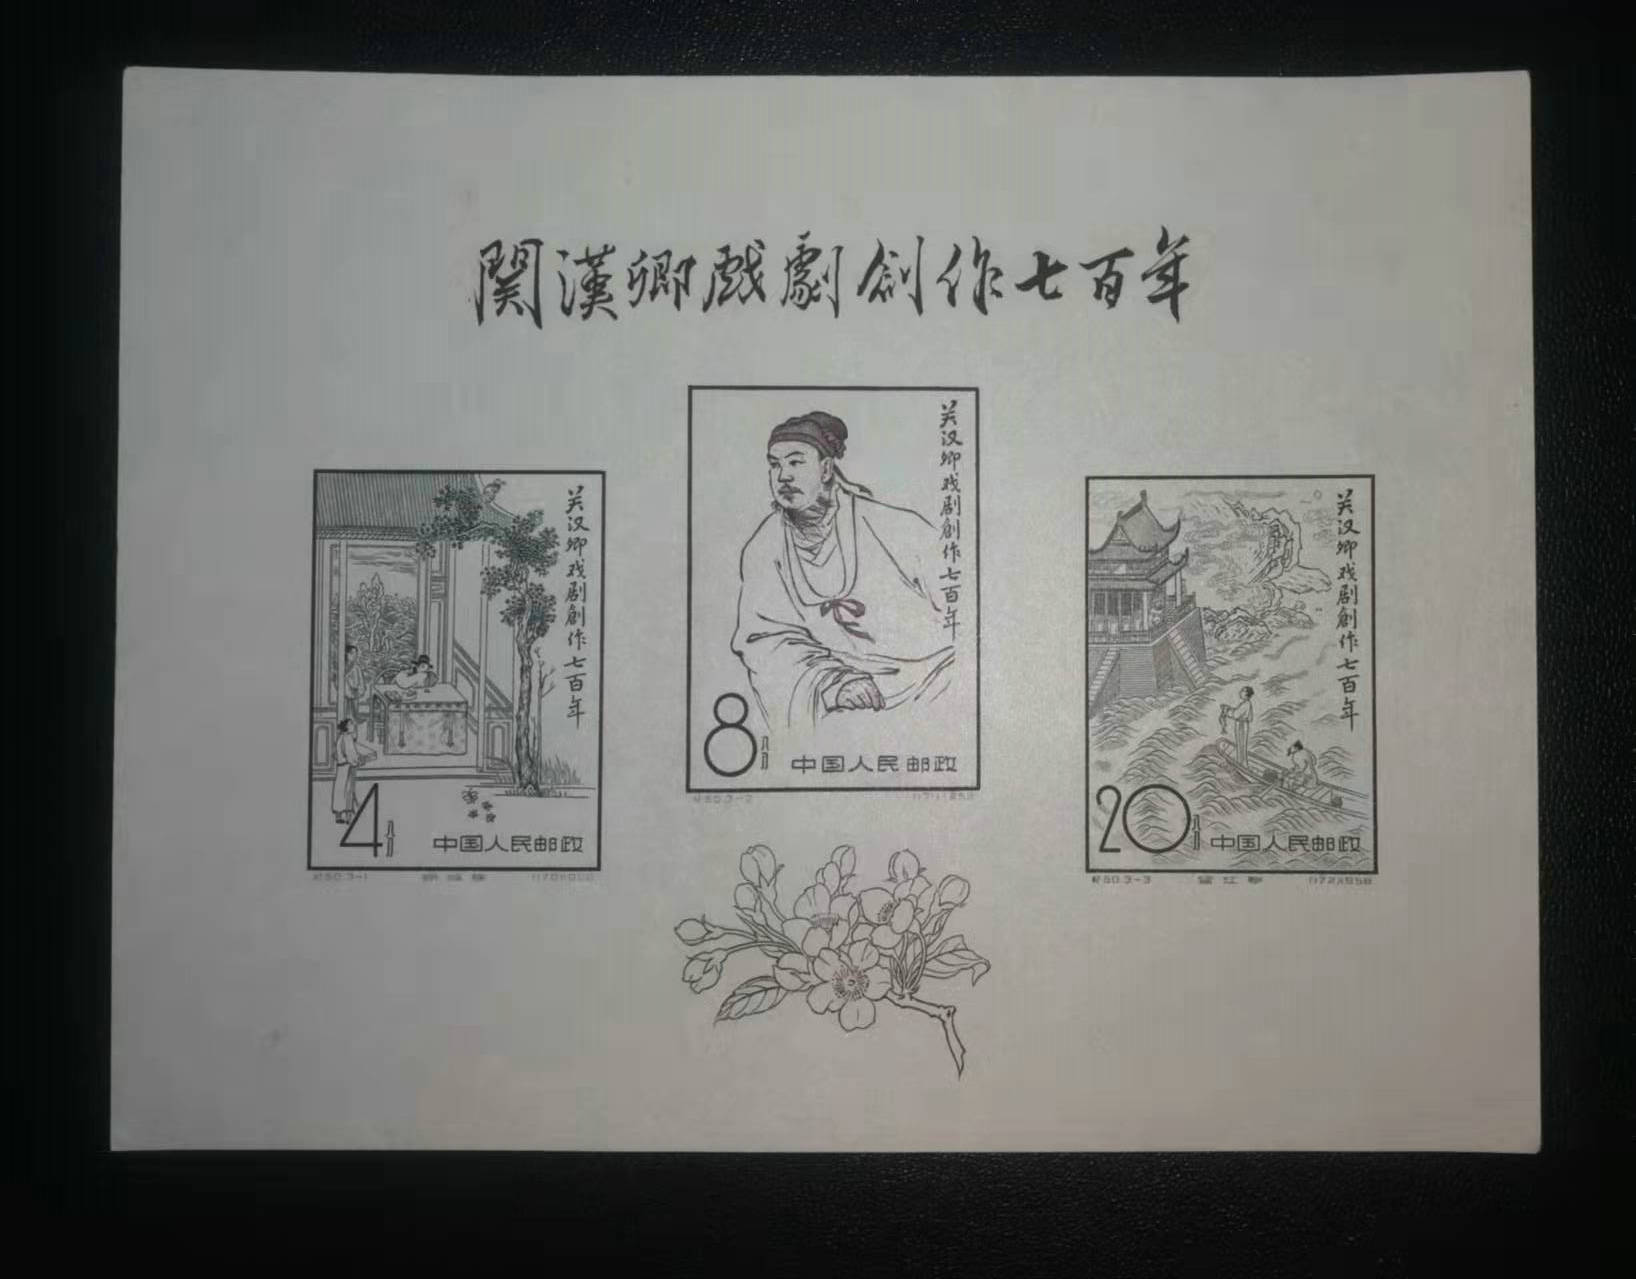 関漢卿戲劇創作七百年
关汉卿戏剧創作七百年
8分
中国人民邮政
纪50.3-2
关汉卿戏剧創作七百年
4分
中国人民邮政
纪50.3-1
关汉卿戏剧創作七百年
20分
中国人民邮政
纪50.3-3
望江亭
(172)1958